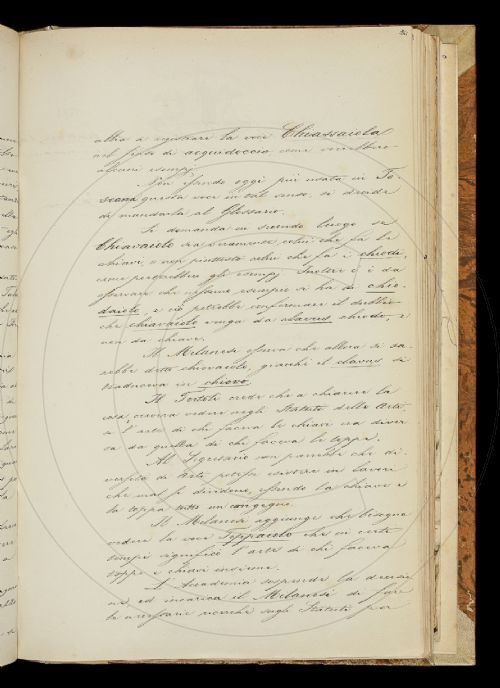 altro a registrare la voce Chiassaiola
nel senso di acquidoccio come vorrebbero
alcuni esempj.
Non essendo oggi più usata in To-
scana questa voce in tal senso, si decide
di mandarla al Glossario.
Si domanda in secondo luogo se
Chiavaiolo sia veramente colui che fa le
chiavi, o non piuttosto colui che fa i chiodi,
come porterebbero gli esempj. Inoltre è da
osservare che in esempio si ha da chio-
daiolo, e ciò potrebbe confermare il dubbio
che chiavaiolo venga da clavus chiodo, e
non da chiave.
Il Milanesi osserva che allora si sa-
rebbe detto chiovaiolo, giacchè il clavus si
traduceva in chiovo.
Il Tortoli crede che a chiarire la
cosa, converra vedere negli Statuti delle Arti,
se l'arte di chi faceva le chiavi era diver-
sa da quella di chi faceva le toppe.
Al Segretario non parrebbe che di-
versità di arte potesse esistere in lavori
che mal si dividono, essendo la chiave e
la toppa tutto un congegno.
Il Milanesi aggiunge che bisogna
vedere la voce Toppaiolo che in certi
tempi significò l'arte di chi faceva
toppe e chiavi insieme.
L'Accademia sospende la decisio-
ne, ed incarica il Milanesi di fare
le necessarie ricerche negli Statuti per